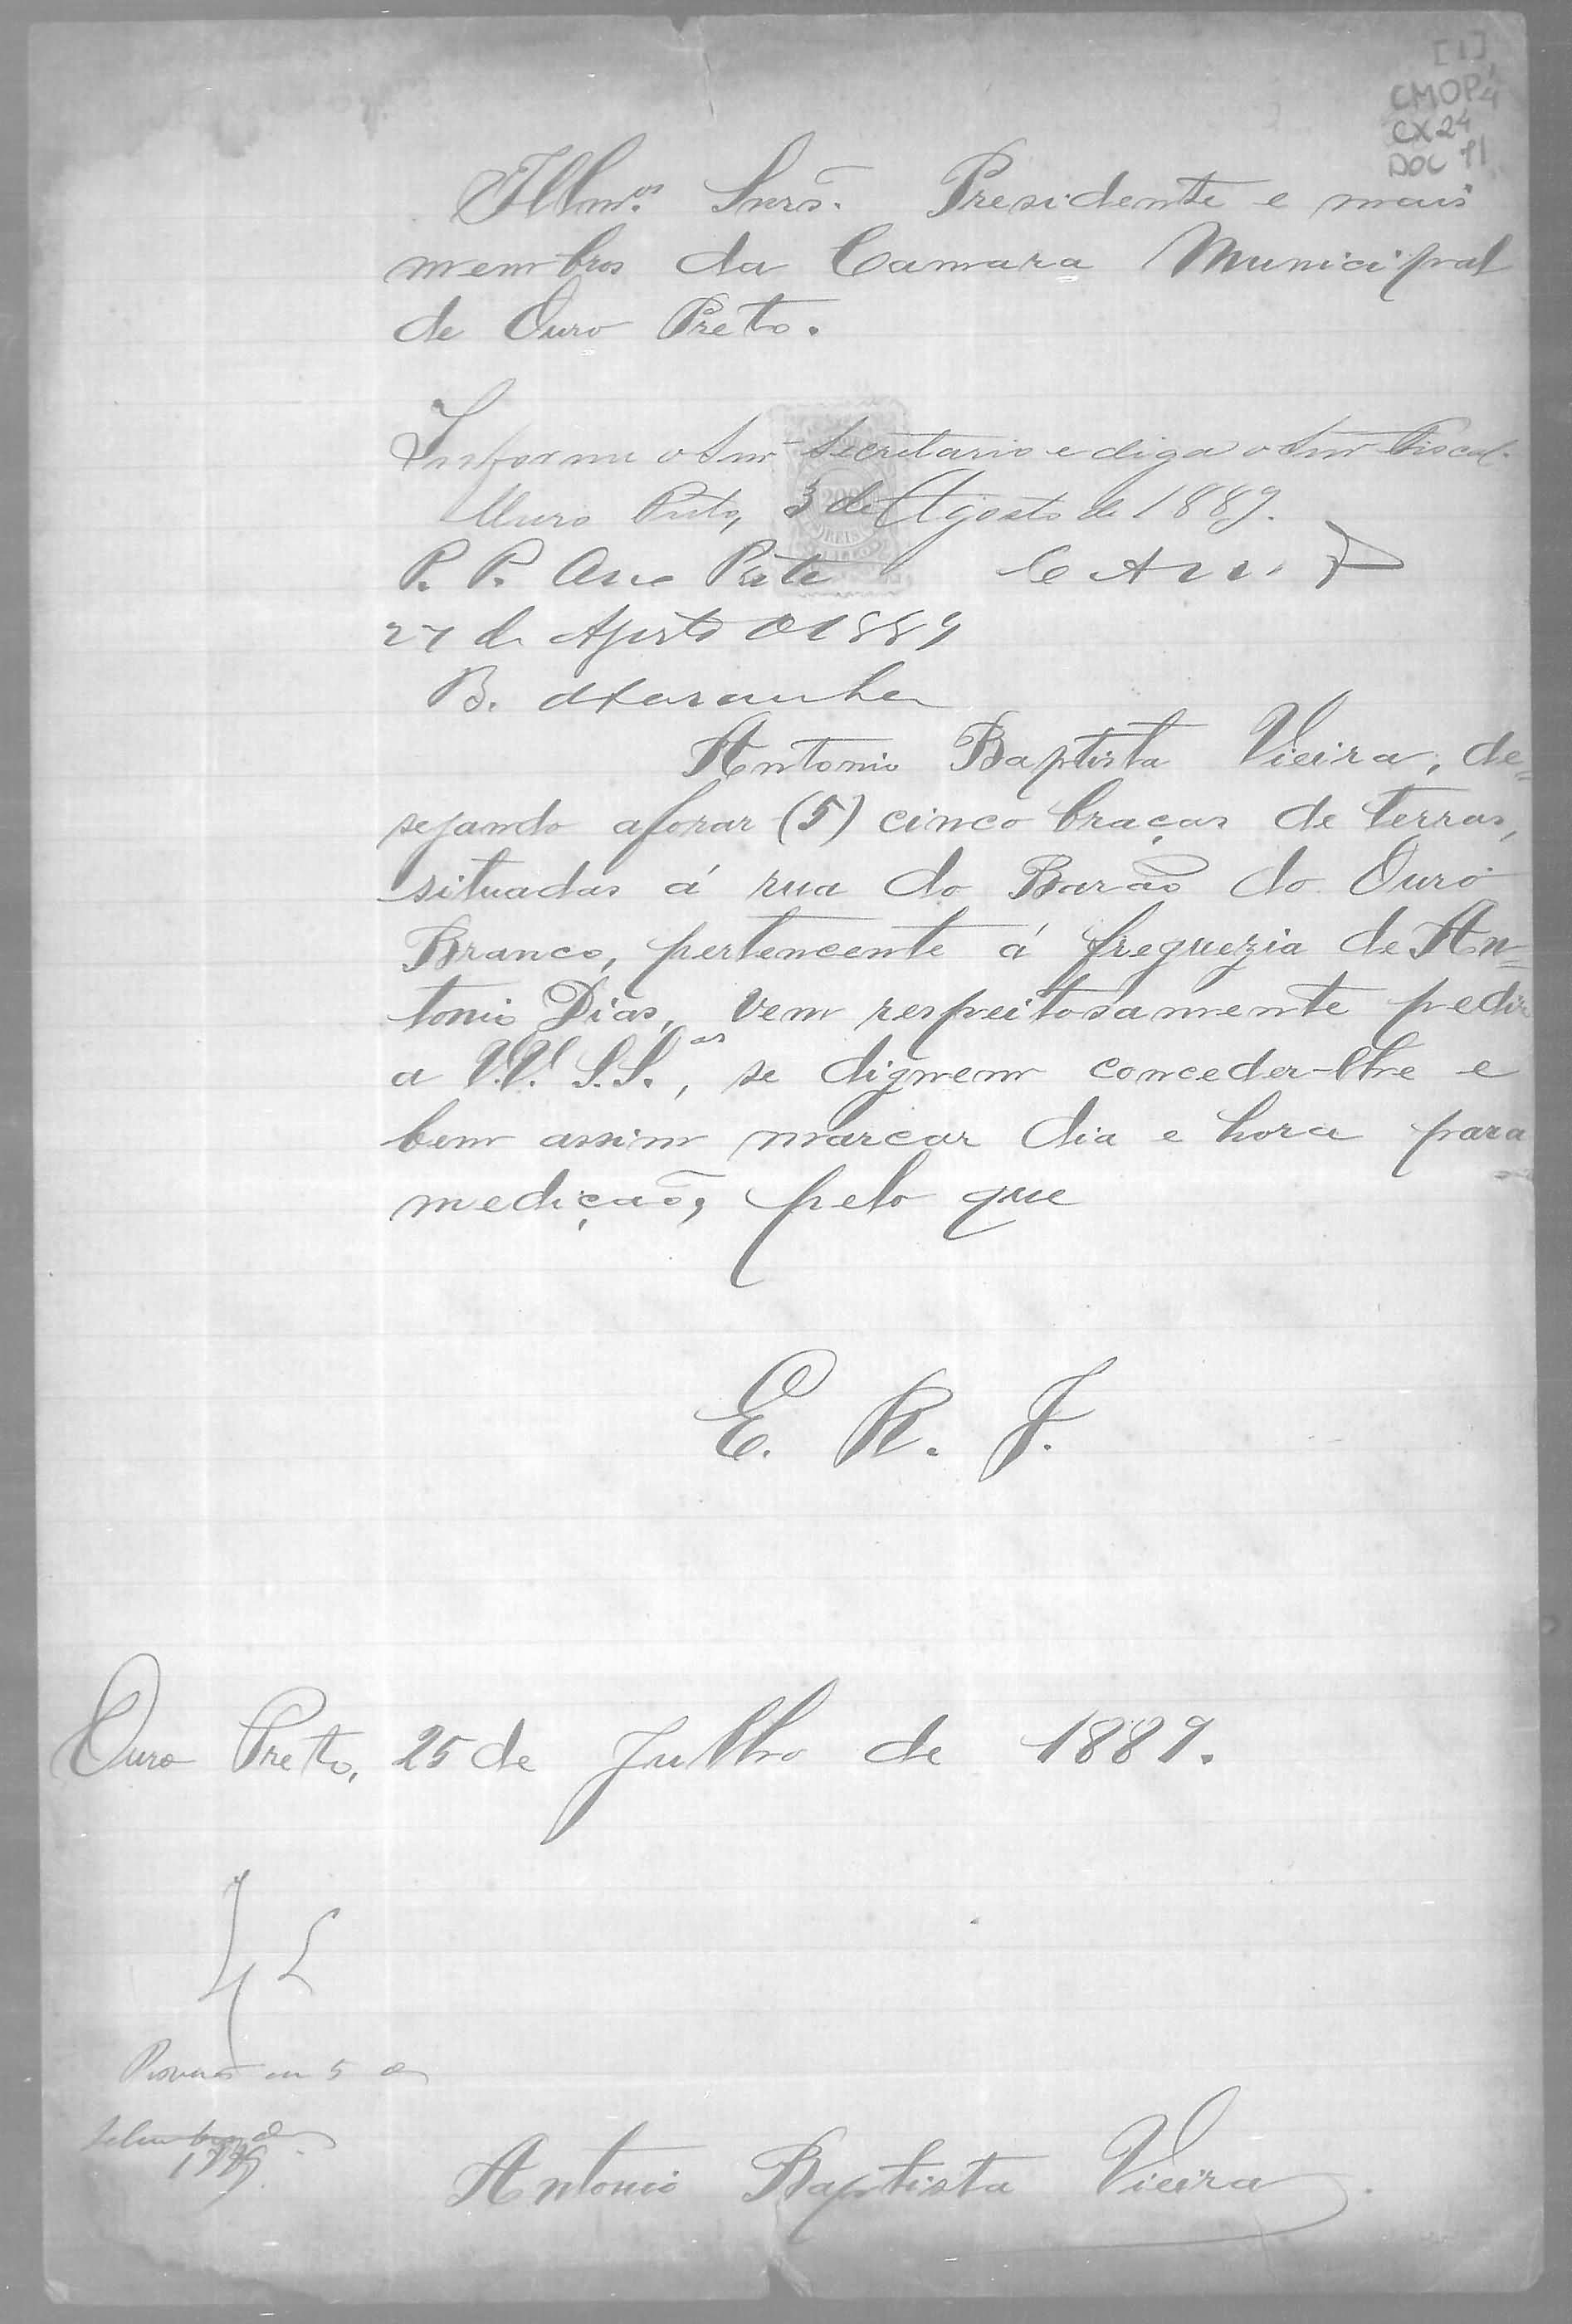 [1]
CMOP4
CX24
DOC 91
Illm.os Snrs. Presidente e mais
membros da Camara Municipal
de Ouro Preto.
Informe o Snr Secretario e diga o Snr Fiscal.
Ouro Preto, 3 de Agosto de 1889.
P. P. Ouro Preto
27 de Agosto de 1889
200
REIS
Antonio Baptista Vieira, de=
sejando aforar (5) cinco braças de terras,
situadas á rua do Barão do Ouro
Branco, pertencente á freguezia de An=
tonio Dias, vem respeitosamente pedir
a V.V. S.S.as, se dignem conceder-lhe e
bem assim marcar dia e hora para
medição, pelo que
E. R. J.
Ouro Preto, 25 de Julho de 1889.
em 5 de
Setembro de
1889.
Antonio Baptista Vieira.